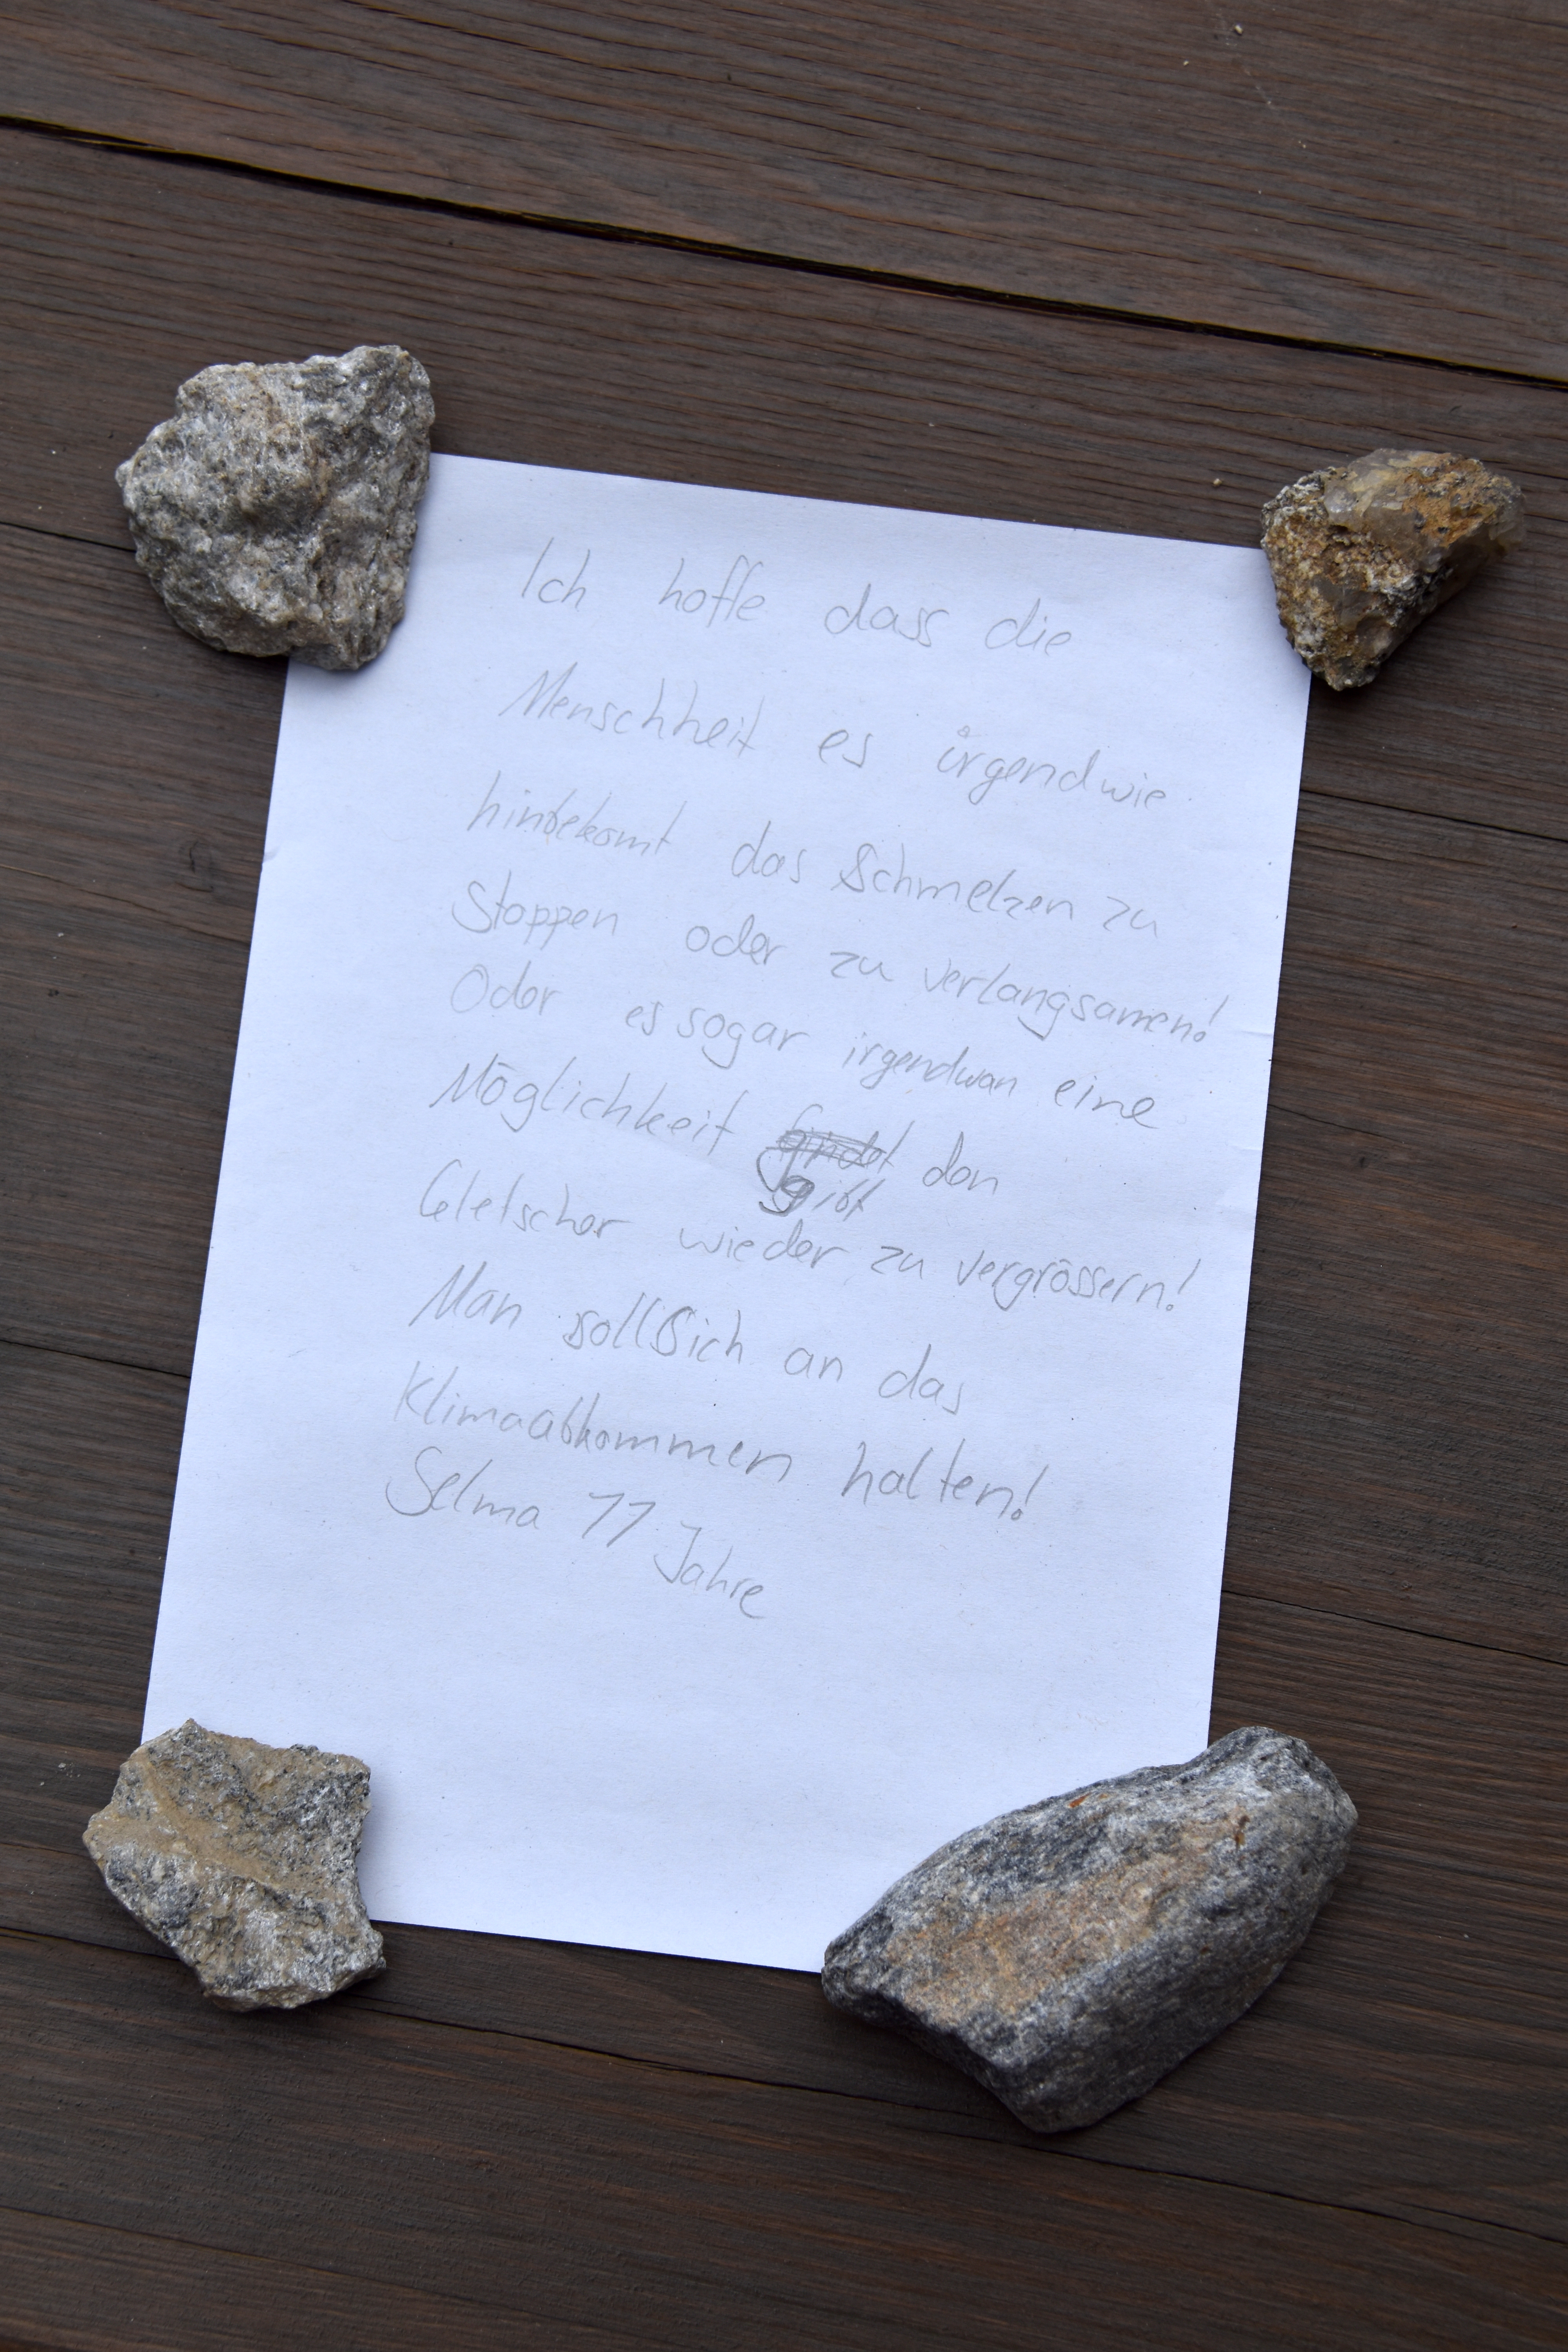 Ich hoffe dass die
Menschheit es irgendwie
hinbekomt das Schmelzen zu
Stoppen oder zu verlangsamen!
Oder es sogar irgendwan eine
Möglichkeit findet den
gibt
Gletscher wieder zu vergrössern!
Man soll sich an das
Klimaabkommen halten!
Selma 11 Jahre